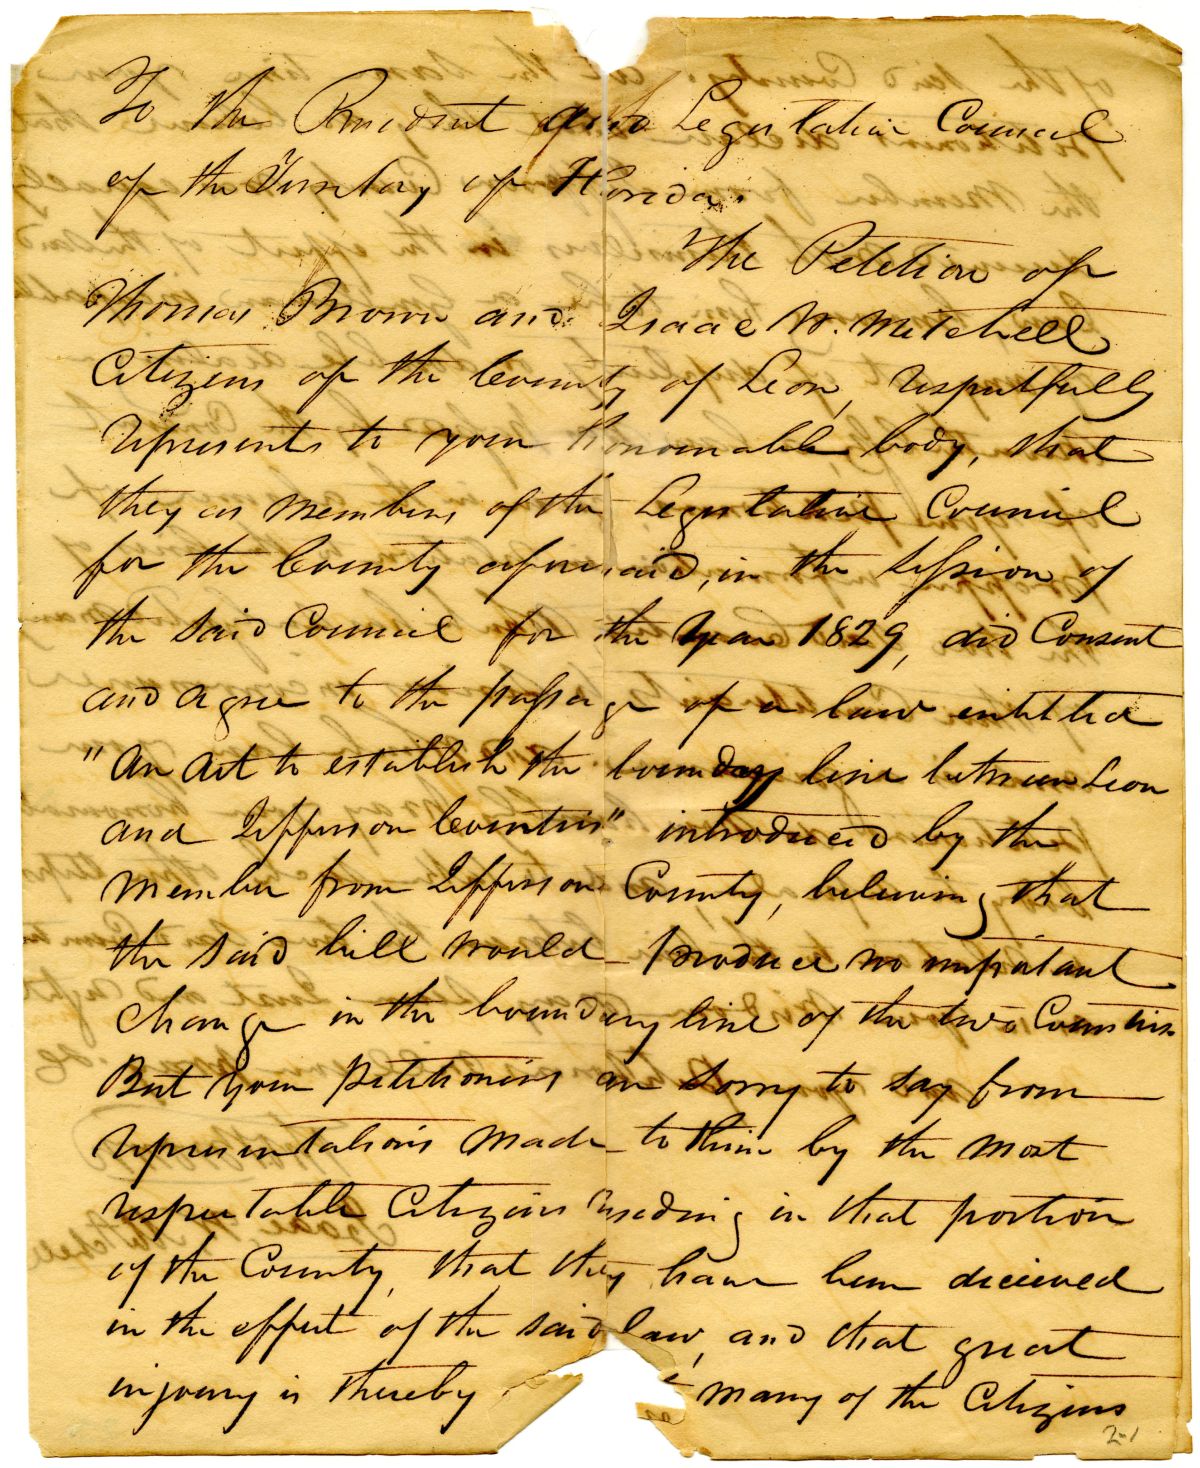 To the President and Legislative Council
of the Territory of Florida.
The Petition of
Thomas Brown and Isaac W. Mitchell
Citizens of the County of Leon, respectfully
represents to your honourable body, that
they as members of the Legislative Council
for the County aforesaid, in the session of
the said Council for the year 1829, did Consent
and agree to the passage of a law intitled
"An act to establish the boundary line between Leon
and Jefferson Counties" introduced by the
member from Jefferson County, believing that
the said bill would produce no important
change in the boundary line of the two Counties.
But your petitioners are sorry to say from
representations made to them by the most
respectable Citizens residing in that portion
of the County, that they have been decieved
in the effect of the said law, and that great
injoury is thereby many of the Citizens
2-1